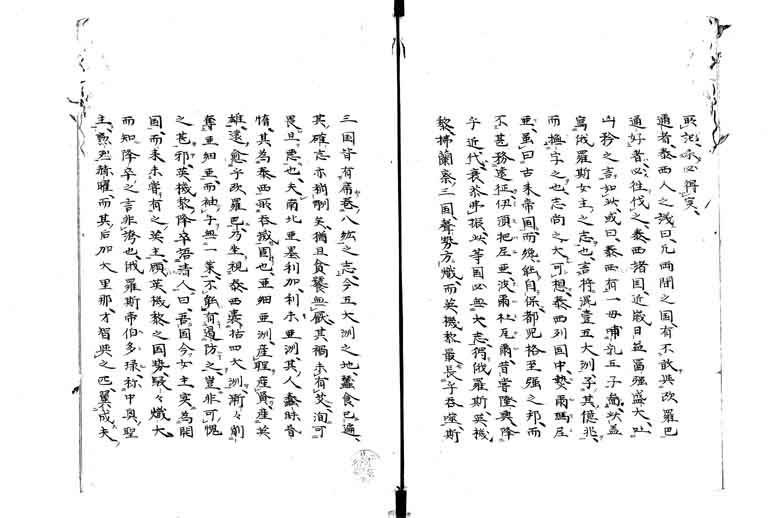 通者泰西人之諺曰凡両間之国有不敢與欧羅巴
通好者必往伐之泰西諸国近歳日益富强盛大吐
此矜之言如此或曰泰西有一母哺乳五子図蓋
為俄羅斯女主之志也言将混壹五大洲子其億兆
而撫字之也志尚之大可想泰西列国中勢爾瑪尼
亜虽曰古来帝国而纔能自保都児格至强之邦而
不甚務遠征伊須把尼亜波爾杜瓦爾昔嘗隆興降
乎近代衰苶不振此等国必無大志獨俄羅斯英機
黎拂蘭察三国聲勢方熾而英機黎最長乎呑噬斯
三国皆有席巻八紘之志今五大洲之地蚕食已遍
其確志亦獨剛矣猶且貪饕無厭其禍未有艾洵可
畏且悪也夫南北亜墨利加利未亜洲其人蠢昧昔
惰其為泰西所呑滅固也亜細亜洲産聖産賢産英
雄遠愈乎欧羅巴乃坐視泰西嚢括四大洲漸々削
奪亜細亜而袖手無一策不能有邊防之豈非可愧
之甚邪英機黎降卒語清人曰吾国今女主実為開
国而来未嘗有之英主顧英機黎之国勢駸々熾大
而知降卒之言非誇也俄羅斯帝伯多琭称中興聖
主烈騎曜而其后加大里那才智與之匹翼成夫